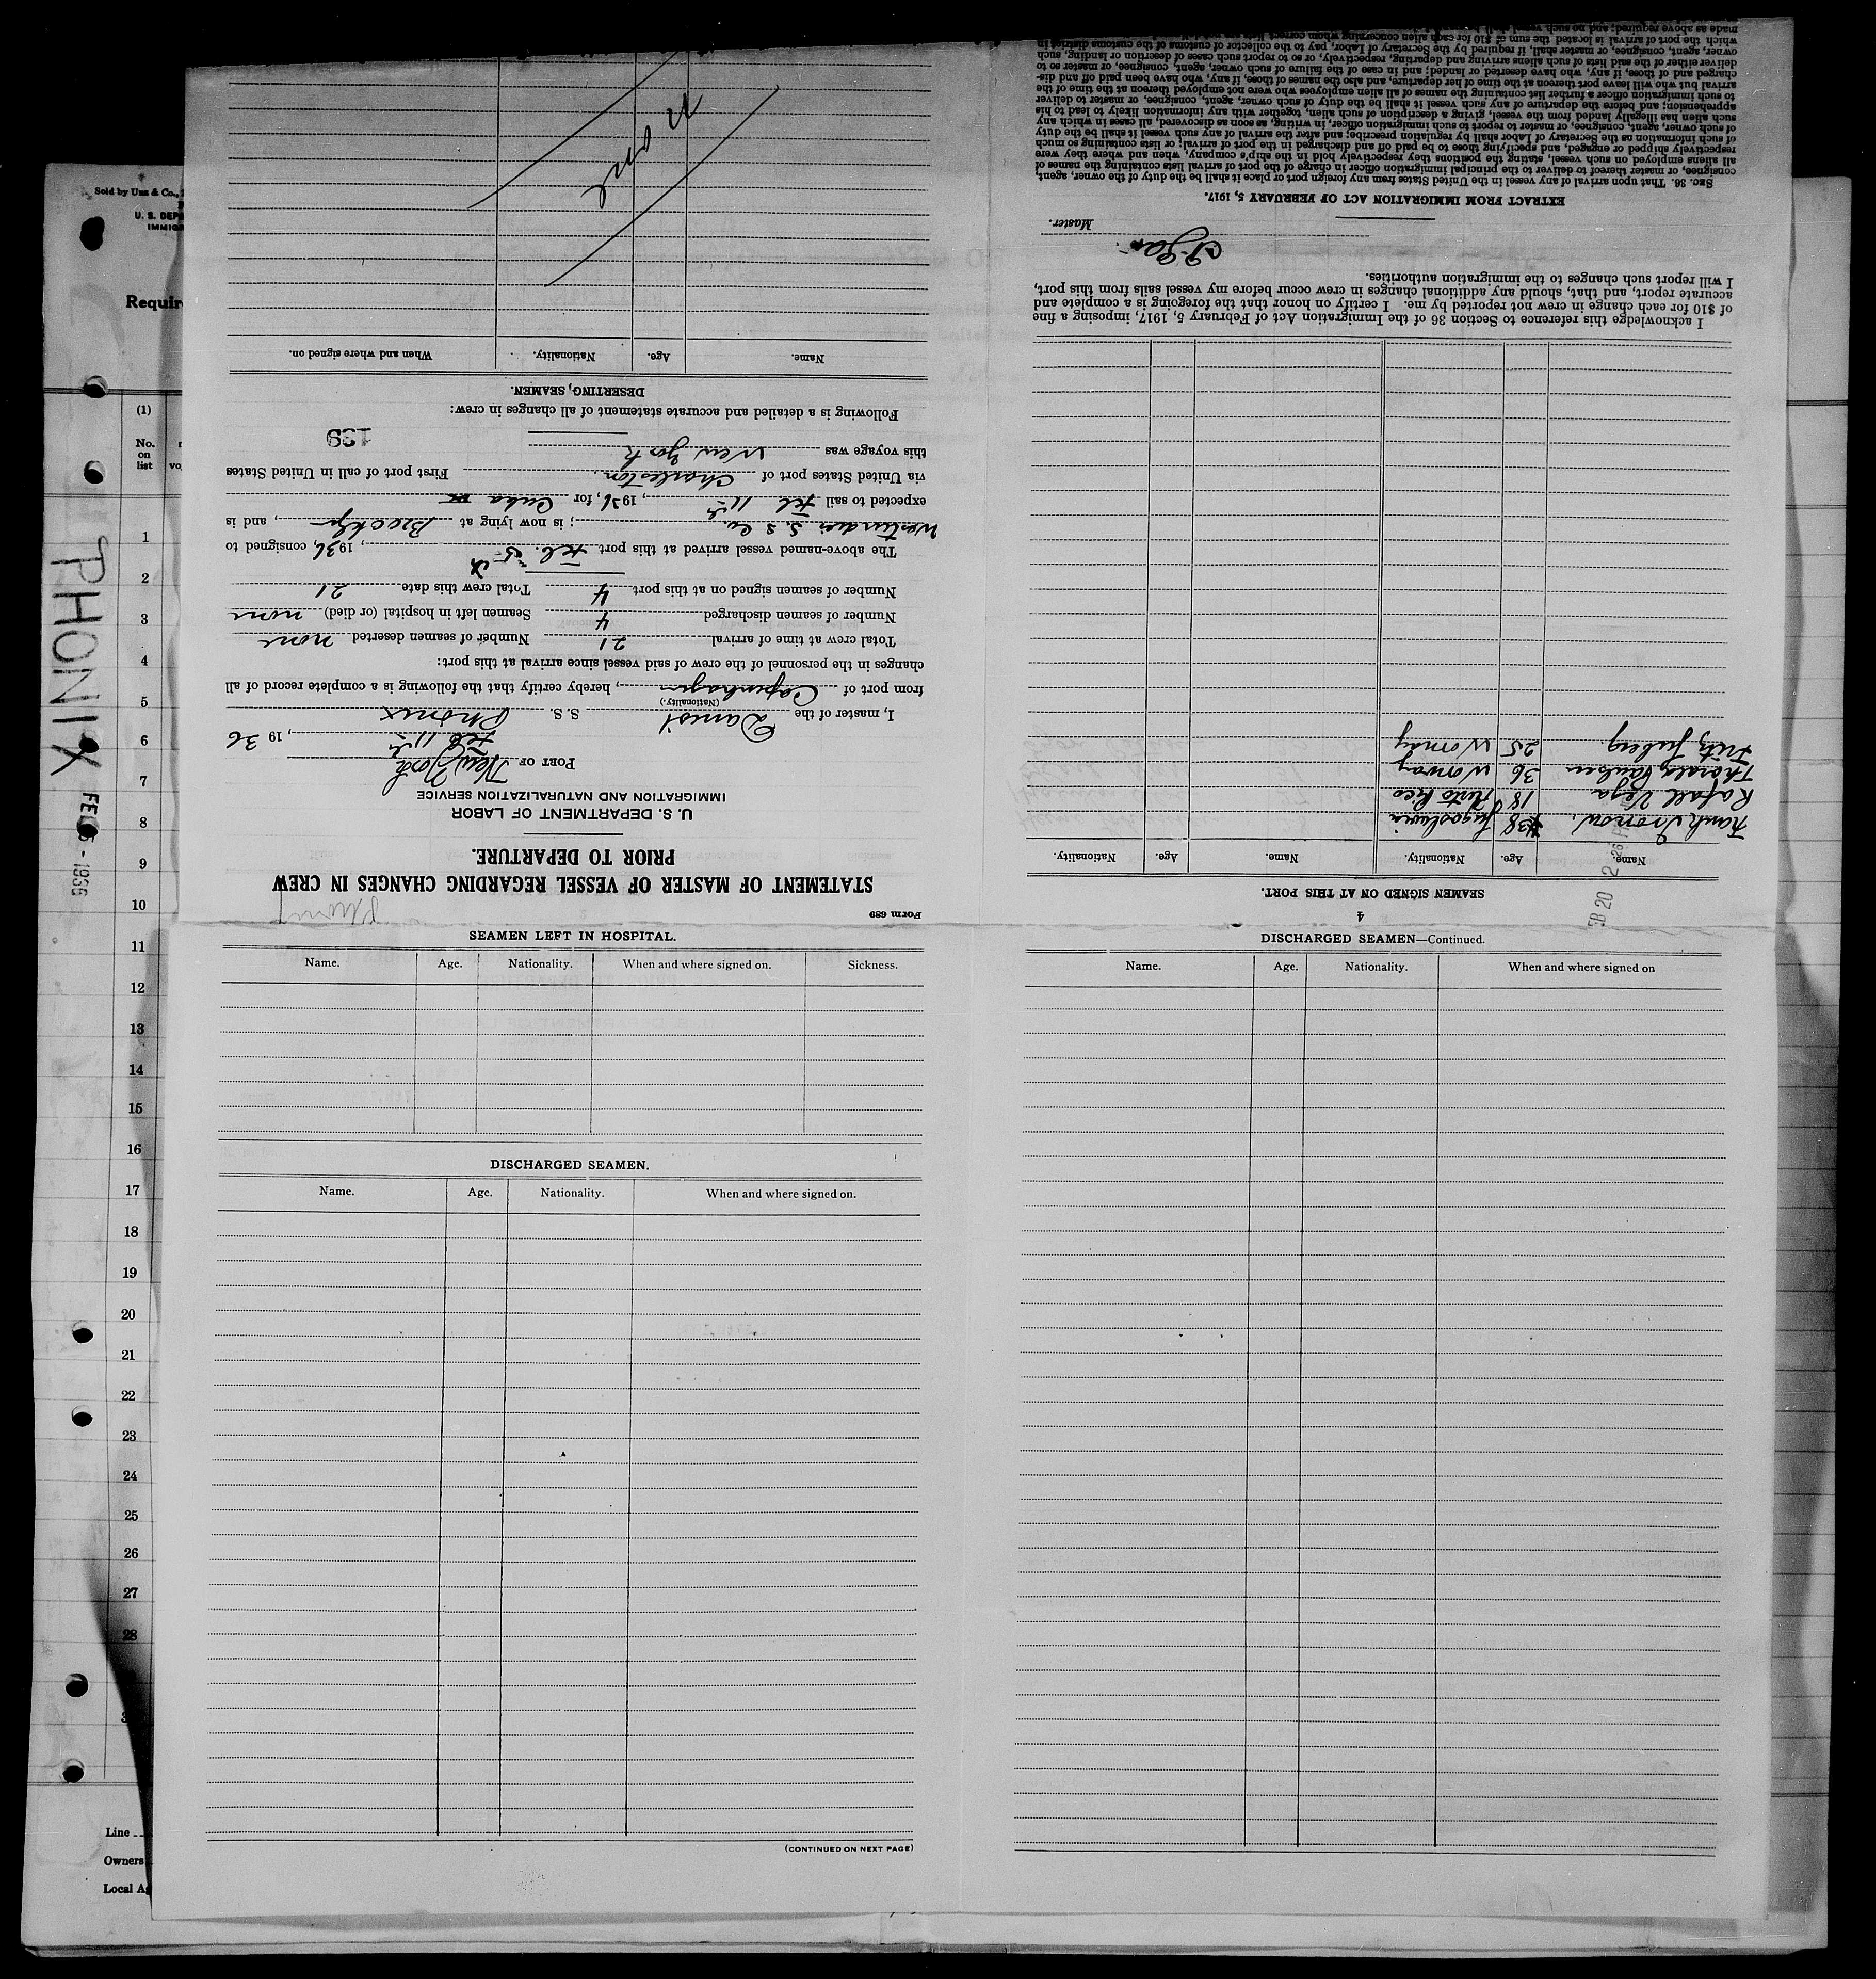 Sold by Unz & Co.,
U. S. DEPA
IMMIGR
Require
(1)
No.
on
list
1
2
3
4
5
6
7
8
9
10
11
12
13
14
15
16
17
18
19
20
21
22
23
24
25
26
27
28
Line
Owners
Local Ag
PHONIX
FEB 5 - 1936
Form 689
STATEMENT OF MASTER OF VESSEL REGARDING CHANGES IN CREW
PRIOR TO DEPARTURE.
U. S. DEPARTMENT OF LABOR
IMMIGRATION AND NATURALIZATION SERVICE
PORT OF New York
Feb 11th, 1936
I, master of the Danish S. S. Phonix
(Nationality.)
from port of Copenhagen, hereby certify that the following is a complete record of all
changes in the personnel of the crew of said vessel since arrival at this port:
Total crew at time of arrival 21 Number of seamen deserted none
Number of seamen discharged 4 Seamen left in hospital (or died) none
Number of seamen signed on at this port 4 Total crew this date 21
The above-named vessel arrived at this port Feb. 5th, 1936, consigned to
Westindies S. S. Co.; is now lying at Brooklyn, and is
expected to sail Feb 11th, 1936, for Cuba
via United States port of Charleston. First port of call in United States
this voyage was New York
139
Following is a detailed and accurate statement of all changes in crew:
DESERTING SEAMEN.
Name. Age. Nationality. When and where signed on.
None
4
SEAMEN SIGNED ON AT THIS PORT.
Name. Age. Nationality. Name. Age. Nationality.
Frank 38 Jugoslavia
Rafael Vega 18 Porto Rico
Thorald Paulsen 36 Norway
Fritz Juberg. 25 Norway
I acknowledge this reference to Section 36 of the Immigration Act of February 5, 1917, imposing a fine
of $10 for each change in crew not reported by me. I certify on honor that the foregoing is a complete and
accurate report, and that, should any additional changes in crew occur before my vessel sails from this port,
I will report such changes to the immigration authorities.
Master.
EXTRACT FROM IMMIGRATION ACT OF FEBRUARY 5, 1917.
SEC. 36. That upon arrival of any vessel in the United States from any foreign port or place it shall be the duty of the owner, agent,
consignee, or master thereof to deliver to the principal immigration officer in charge of the port of arrival lists containing the names of
all aliens employed on such vessel, stating the positions they respectively hold in the ship's company, when and where they were
respectively shipped or engaged, and specifying those to be paid off and discharged in the port of arrival; or lists containing so much
of such information as the Secretary of Labor shall by regulation prescribe; and after the arrival of any such vessel it shall be the duty
of such owner, agent, consignee, or master to report to such immigration officer, in writing, as soon as discovered, all cases in which any
such alien has illegally landed from the vessel, giving a description of such alien, together with any information likely to lead to his
apprehension; and before the departure of any such vessel it shall be the duty of such owner, agent, consignee, or master to deliver
to such immigration officer a further list containing the names of all alien employees who were not employed thereon at the time of the
arrival but who will leave port thereon at the time of her departure, and also the names of those, if any, who have been paid off and dis-
charged and of those, if any, who have deserted or landed; and in case of the failure of such owner, agent, consignee, or master so to
deliver either of the said lists of such aliens arriving and departing, respectively, or so to report such cases of desertion or landing, such
owner, agent, consignee, or master shall, if required by the Secretary of Labor, pay to the collector of customs of the customs district in
which the port of arrival is located the sum of $10 for each alien concerning whom correct lists are not
SEAMEN LEFT IN HOSPITAL.
Name. Age. Nationality. When and where signed on. Sickness.
DISCHARGED SEAMEN.
Name. Age. Nationality. When and where signed on.
(CONTINUED ON NEXT PAGE)
DISCHARGED SEAMEN—Continued.
Name. Age. Nationality. When and where signed on